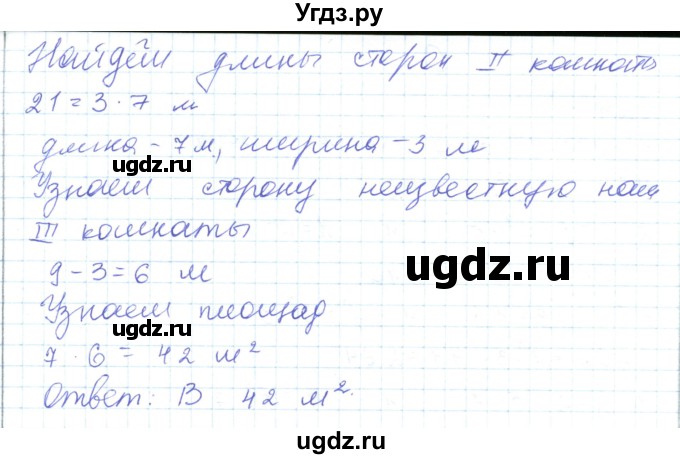 Угдз.ру
Найдём длины сторон II комнаты
21 = 3 · 7 м
длина – 7 м, ширина – 3 м
ugdz.ru
Узнаем сторону неизвестную нам
III комнаты
ugdz.ru
9 – 3 = 6 м
Узнаем площад
ugdz.ru
7 · 6 = 42 м²
Ответ: В 42 м².
ugdz.ru